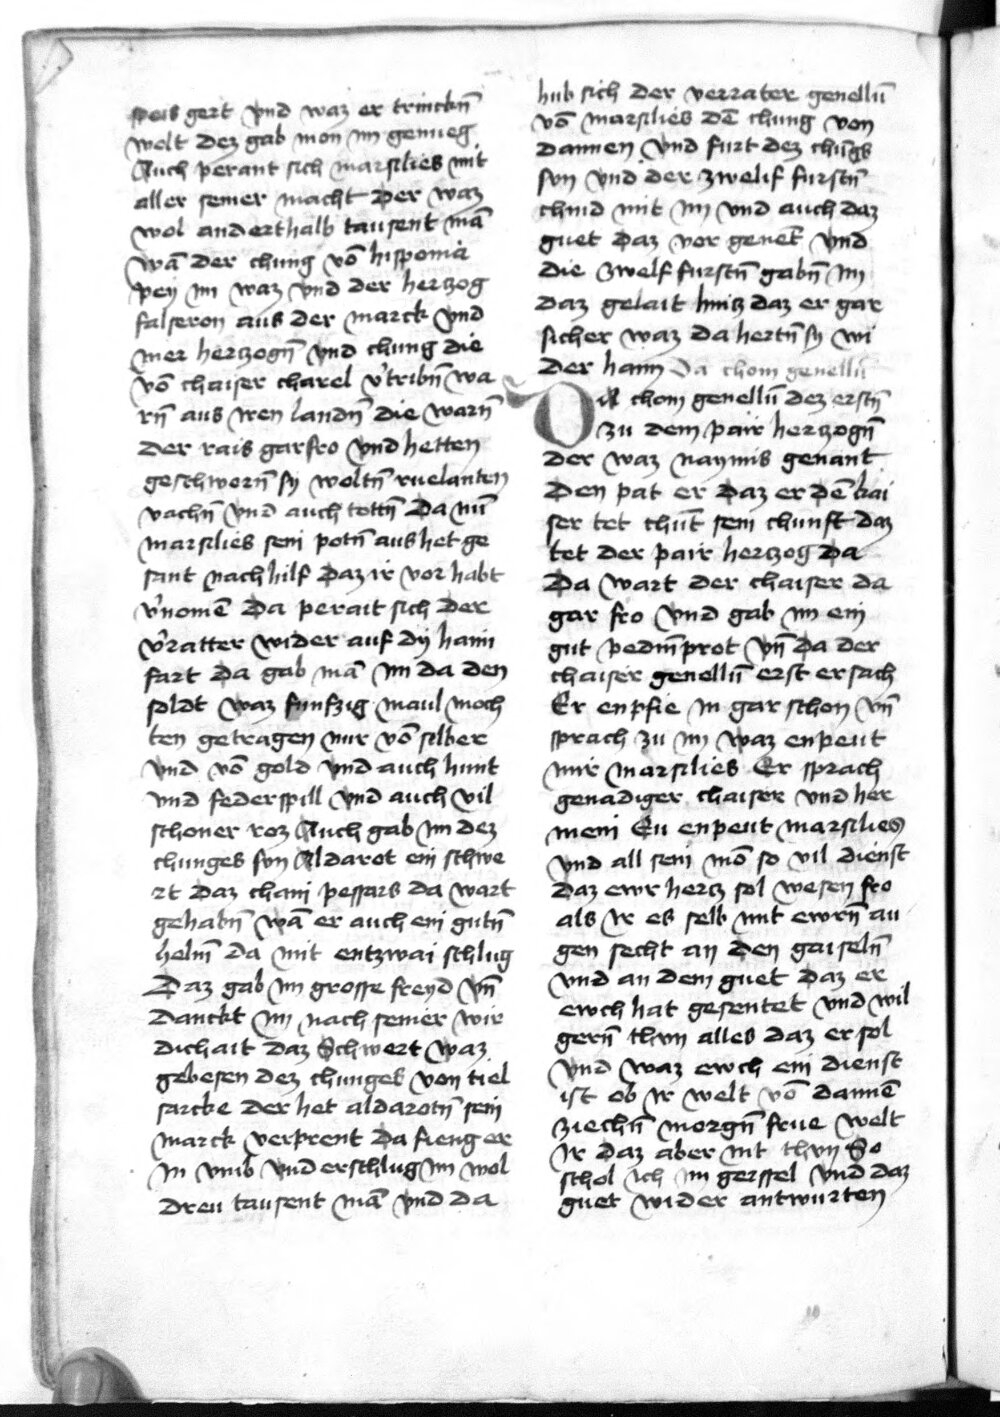 speis gert vnd waz er trinckn̄
welt dez gab mon im genueg
Auch perant sich marsilies mit
aller seiner macht Der waz
wol anderthalb tausent mā
wā der chung vō hispoma
pey im waz vnd der hertzog
falseron aus der marck vnd
mer hertzogn̄ vnd chung die
vō chaiser charel v'tribn̄ wa
rn̄ aus iren landn̄ die warn̄
der rais gar fro vnd hetten
geschwern̄ sy woltn̄ ruelanten
vachn̄ vnd auch tottn̄ Da nū
marsilies sein potn̄ aus het ge
sant nach hilf Daz ir vor habt
v'nomē Da perait sich der
v'ratter wider auf dy haim
fart Da gab mā im da den
soldt waz funfzig maul moch
ten getragen nur vō silber
vnd vō gold vnd auch hunt
vnd federspill vnd auch vil
schoner roz Auch gab im dez
chunges sun Aldarot ein schwe
rt daz cham pessars da wart
gehabn̄ wā er auch ein gutn̄
helm̄ da mit entzwai schlug
Daz gab im grosse freyd vn̄
danckt im nach seiner wir
dichait daz Schwert waz
gebesen dez chunges von tiel
sarcke der het aldarotn̄ sein
marck verprent Da fieng er
in vmb vnd erschlug im wol
dreu tausent mā vnd da
hub sich der verrater genellū
vō marsilies dē chung von
dannen vnd furt dez chūgs
sun vnd der zwelif furstn̄
chind mit im vnd auch daz
guet daz vor genēt vnd
die zwelf furstn̄ gabn̄ im
daz gelait hintz daz er gar
sicher waz da hertn̄ sy wi
der haim Da chom genellū
Da chom genellū dez erstn̄
zu dem pair hertzogn̄
der waz naymis genant
Den pat er daz er dē kai
ser tet chūt sein chunft daz
tet der pair hertzog Da
Da wart der chaiser da
gar fro vnd gab im ein
gut pedm̄prot vn̄ da der
chaiser genellū erst ersach
Er enpfie in gar schon vn̄
sprach zu im waz enpeut
mir marsilies Er sprach
genadiger chaiser vnd her
mein Eu enpeut marsilies
vnd all sein mō so vil dienst
daz ewr hertz sol wesen fro
als ir es selb mit ewrn̄ au
gen secht an den gaiseln̄
vnd an dem guet daz er
ewch hat gesentet vnd wil
gern̄ thun alles daz er sol
vnd waz ewch ein dienst
ist ob ir welt vō dannē
ziechn̄ morgn̄ frue welt
ir daz aber nit thun So
schol ich im gerssel vnd daz
guet wider antwurten